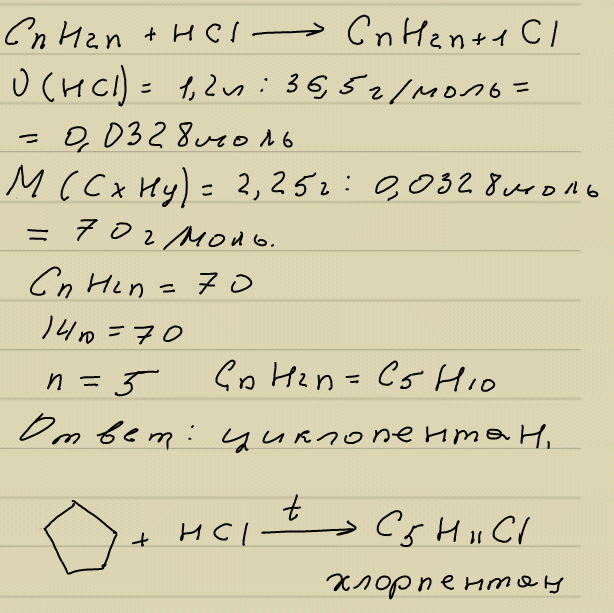 CnH2n + HCl ⟶ CnH2n+1Cl
υ(HCl) = 1,2г : 36,5г/моль =
= 0,0328моль
M(CxHy) = 2,25г : 0,0328моль
= 70г/моль.
CnH2n = 70
14n = 70
n = 5 CnH2n = C5H10
Ответ: циклопентан,
+ HCl t⟶ C5H11Cl
хлорпентан